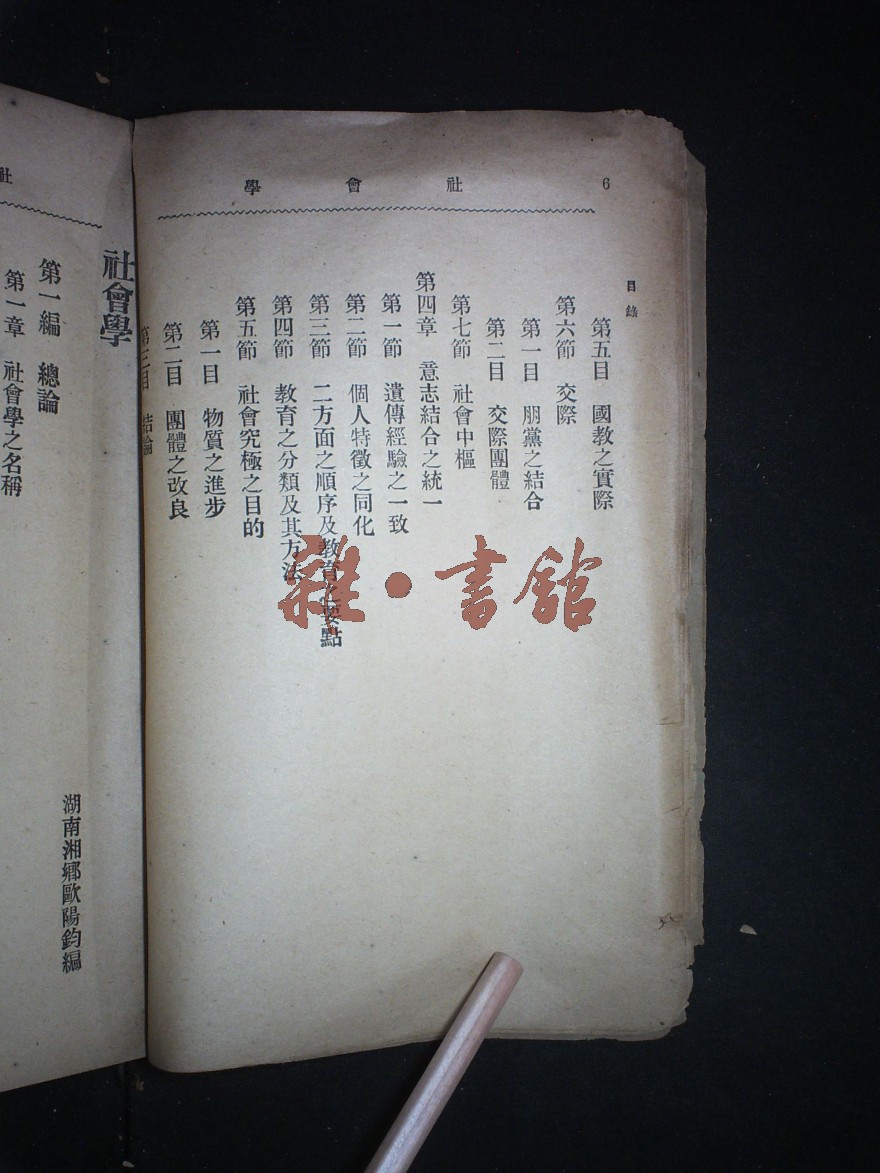 6
社會學
目錄
第五目 國教之實際
第六節 交際
第一目 朋黨之結合
第二目 交際團體
第七節 社會中樞
第四章 意志結合之統一
第一節 遺傳經驗之一致
第二節 個人特徵之同化
第三節 二方面之順序及教育之要點
第四節 教育之分類及其方法
第五節 社會究極之目的
第一目 物質之進步
第二目 團體之改良
第三目 結論
雜·書館
社
社會學
湖南湘鄉歐陽鈞編
第一編 總論
第一章 社會學之名稱